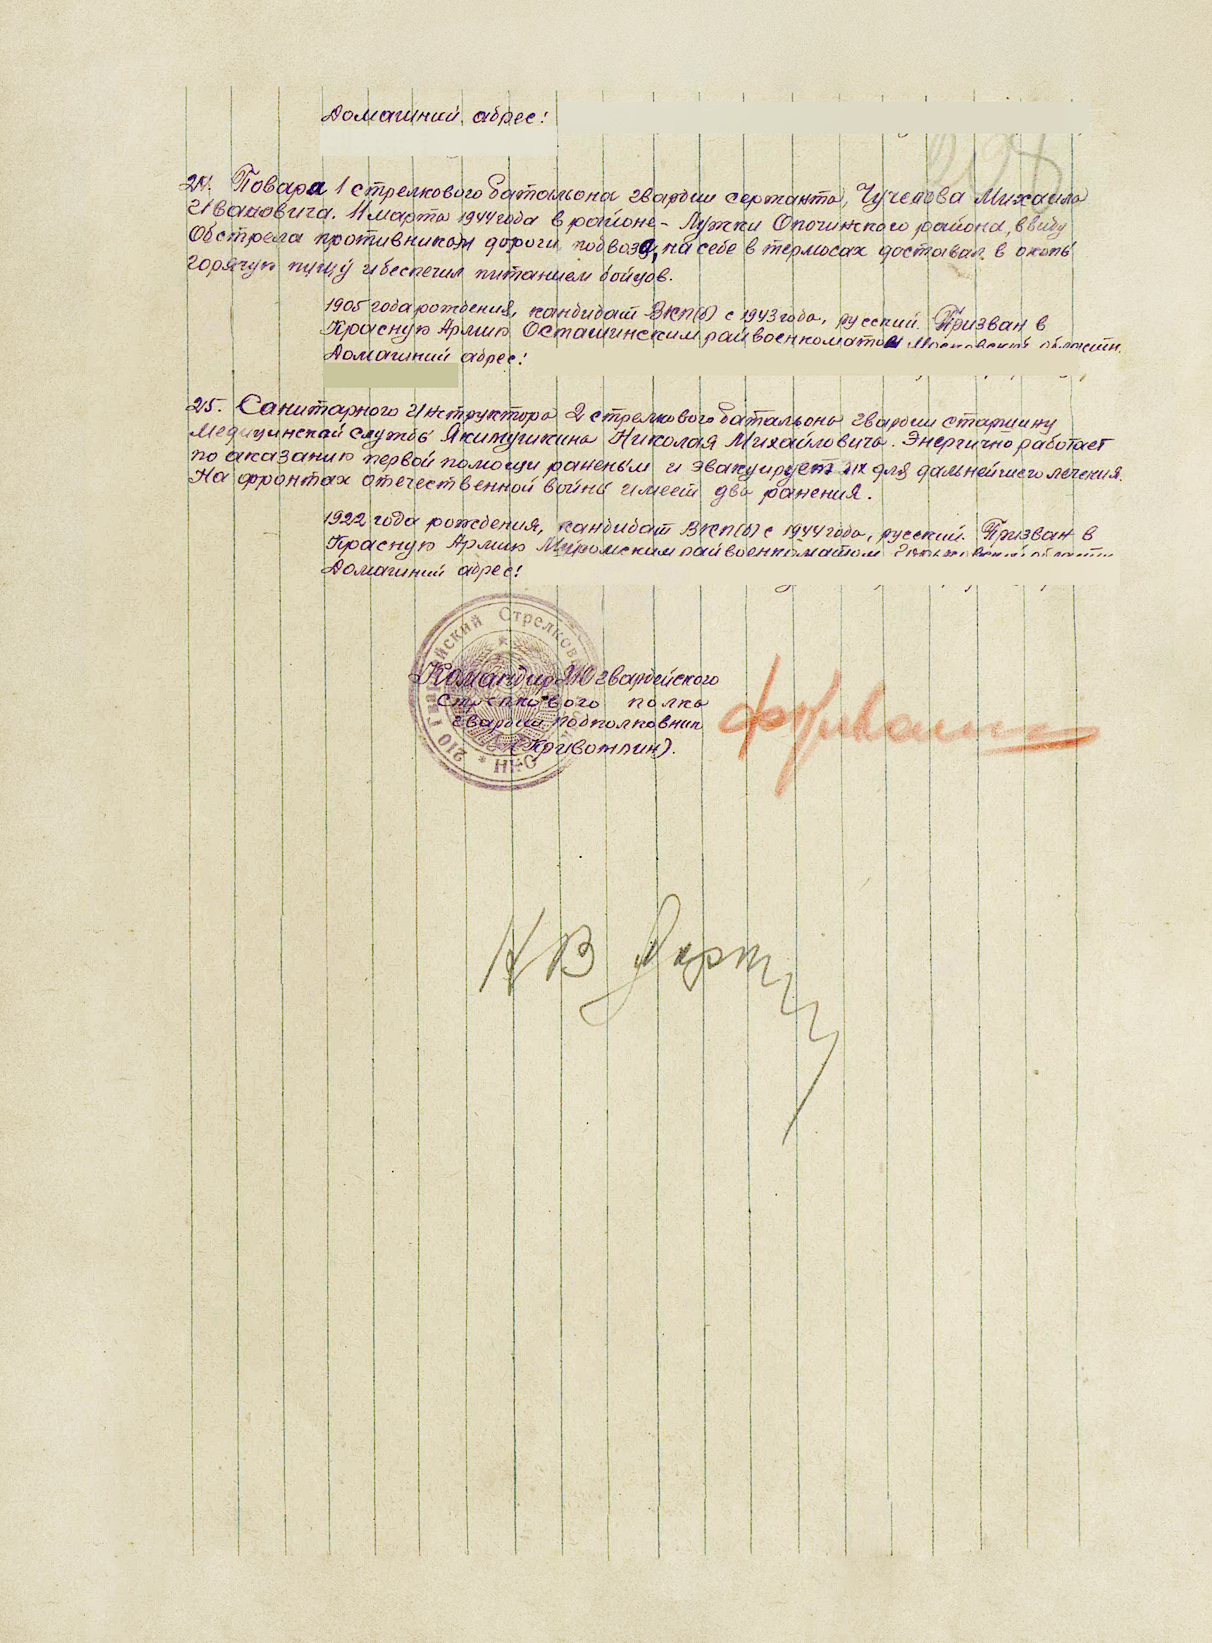 Домашний адрес:
24. Повара 1 стрелкового батальона гвардии сержанта, Чучелова Михаила
Ивановича. 11 марта 1944 года в районе - Лужки Опочинского района, ввиду
Обстрела противником дороги подвоза, на себе в термосах доставал в окопы
горячую пищу и беспечил питанием бойцов.
1905 года рождения, кандидат ВКП(б) с 1943 года, русский. Призван в
Красную Армию Осташинским райвоенкоматом Московской области.
Домашний адрес:
25. Санитарного Инструктора 2 стрелкового батальона гвардии старшину
Медицинской службы Якимушкина Николая Михайловича. Энергично работает
по аказанию первой помощи раненым и эвакуирует их для дальнейшего лечения.
На фронтах отечественной войны имеет два ранения.
1922 года рождения, кандидат ВКП(б) с 1944 года, русский. Призван в
Красную Армию Муромским райвоенкоматом Горьковской области
Домашний адрес:
210 Гвардейский Стрелковый
Командир 210 гвардейского
Стрелкового полка
гвардии подполковник
(Кривошлик).
НВ